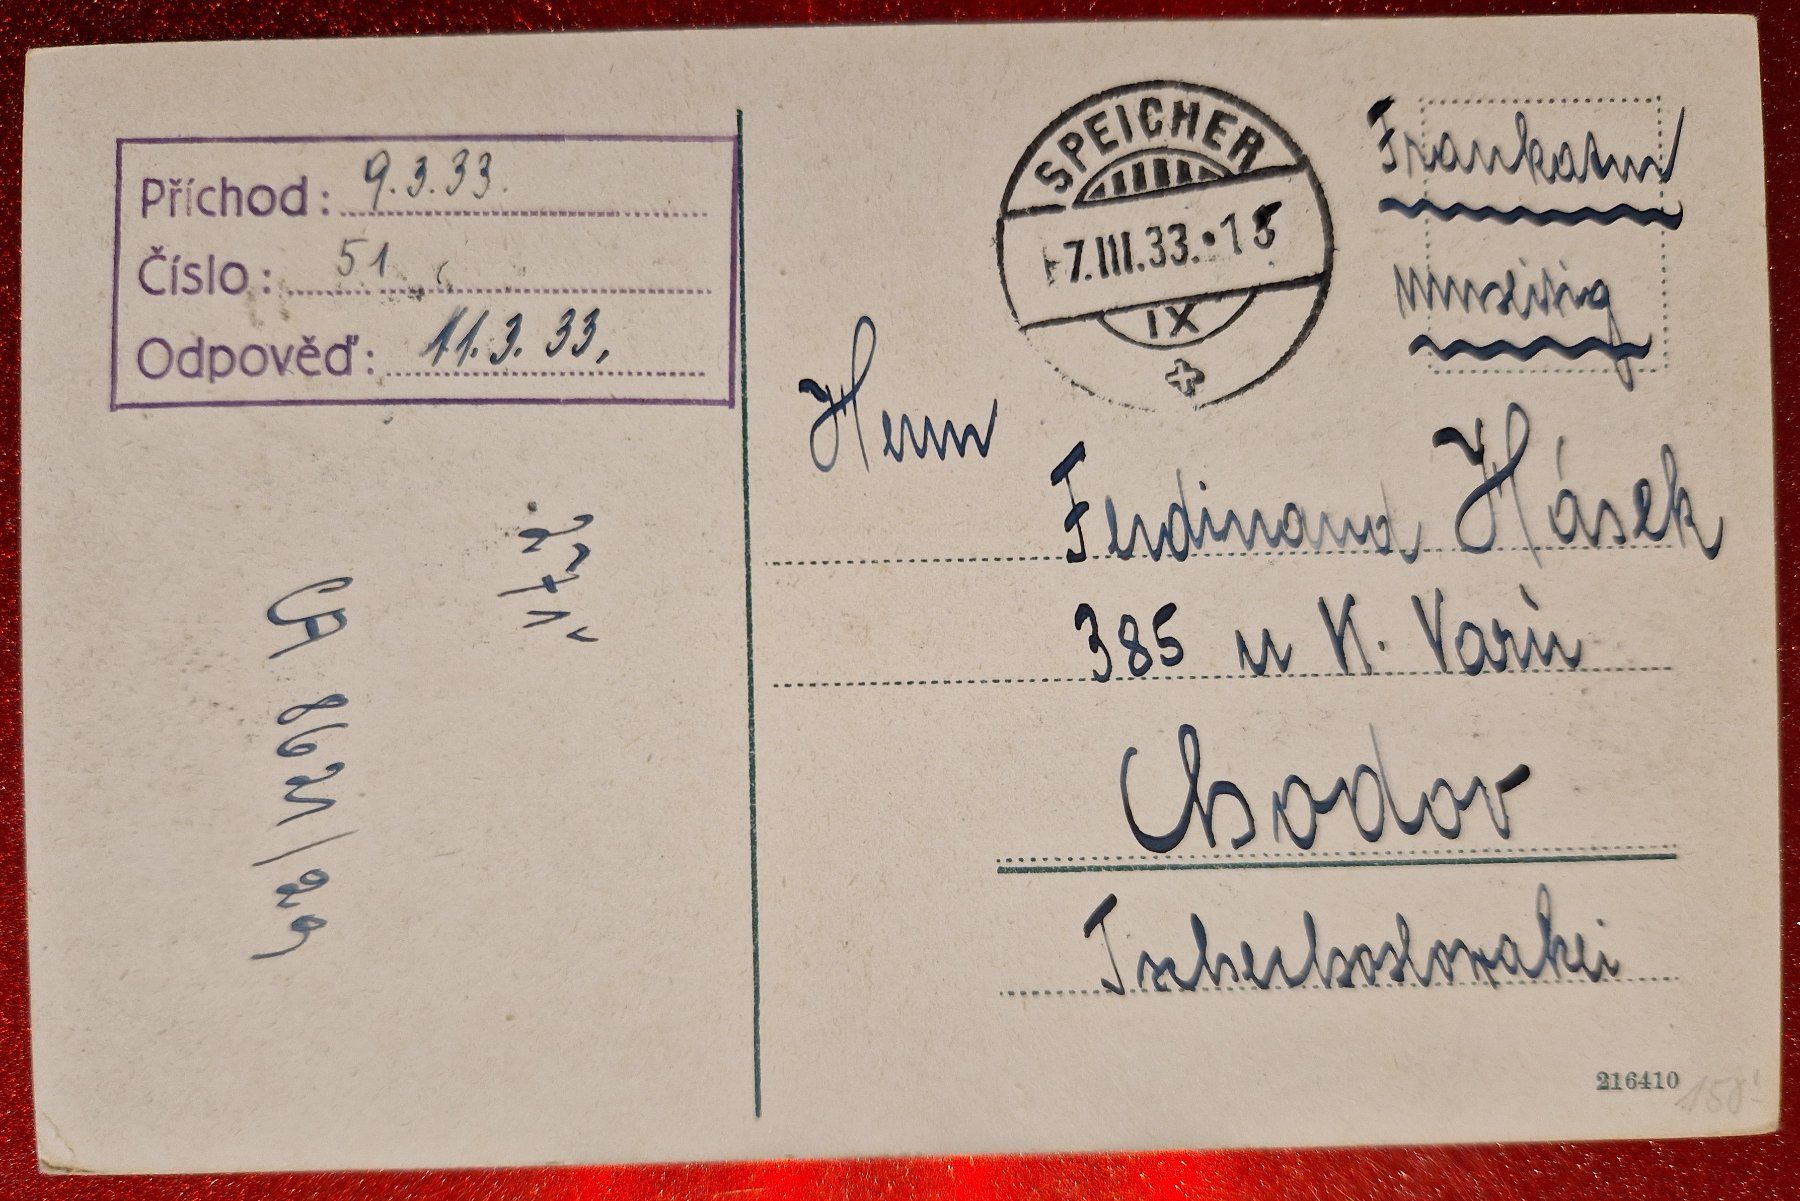 Příchod: 9.3.33.
Číslo: 51
Odpověď: 11.3.33.
CA 8621/29
SPEICHER
7.III.33.•15
IX
Frankatur
umseitig
Herrn
Ferdinand Hásek
385 u K. Varů
Chodov
Tschechoslowakei
216410
150